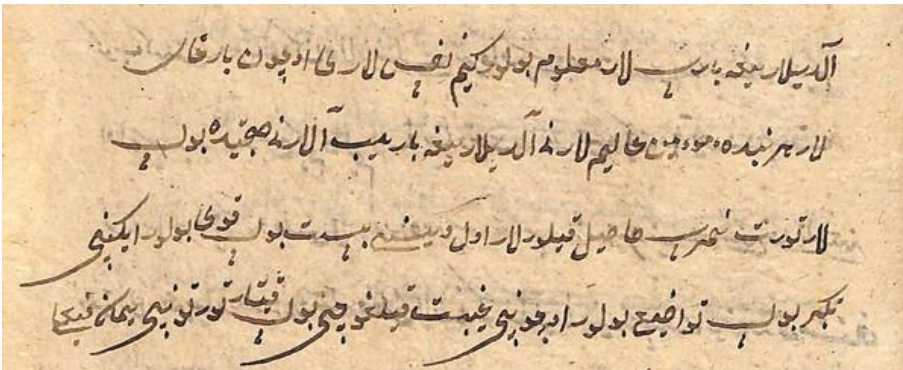 آلدیلاریغه بارسه لار معلوم بولور کیم نفس لاری اوچون بارغان
لار هر بنده مومین عالیم لار نی آلدیلاریغه باریب آلارنی صحبتیده بولسه
لار تورت نمرسه حاصیل قیلورلار اول بولسه قوی بولور ایکنچی
تکبر بولسه تواضیع بولور اوچونچی غیبت قیلغوچی بولسه قیتار تورتونچی